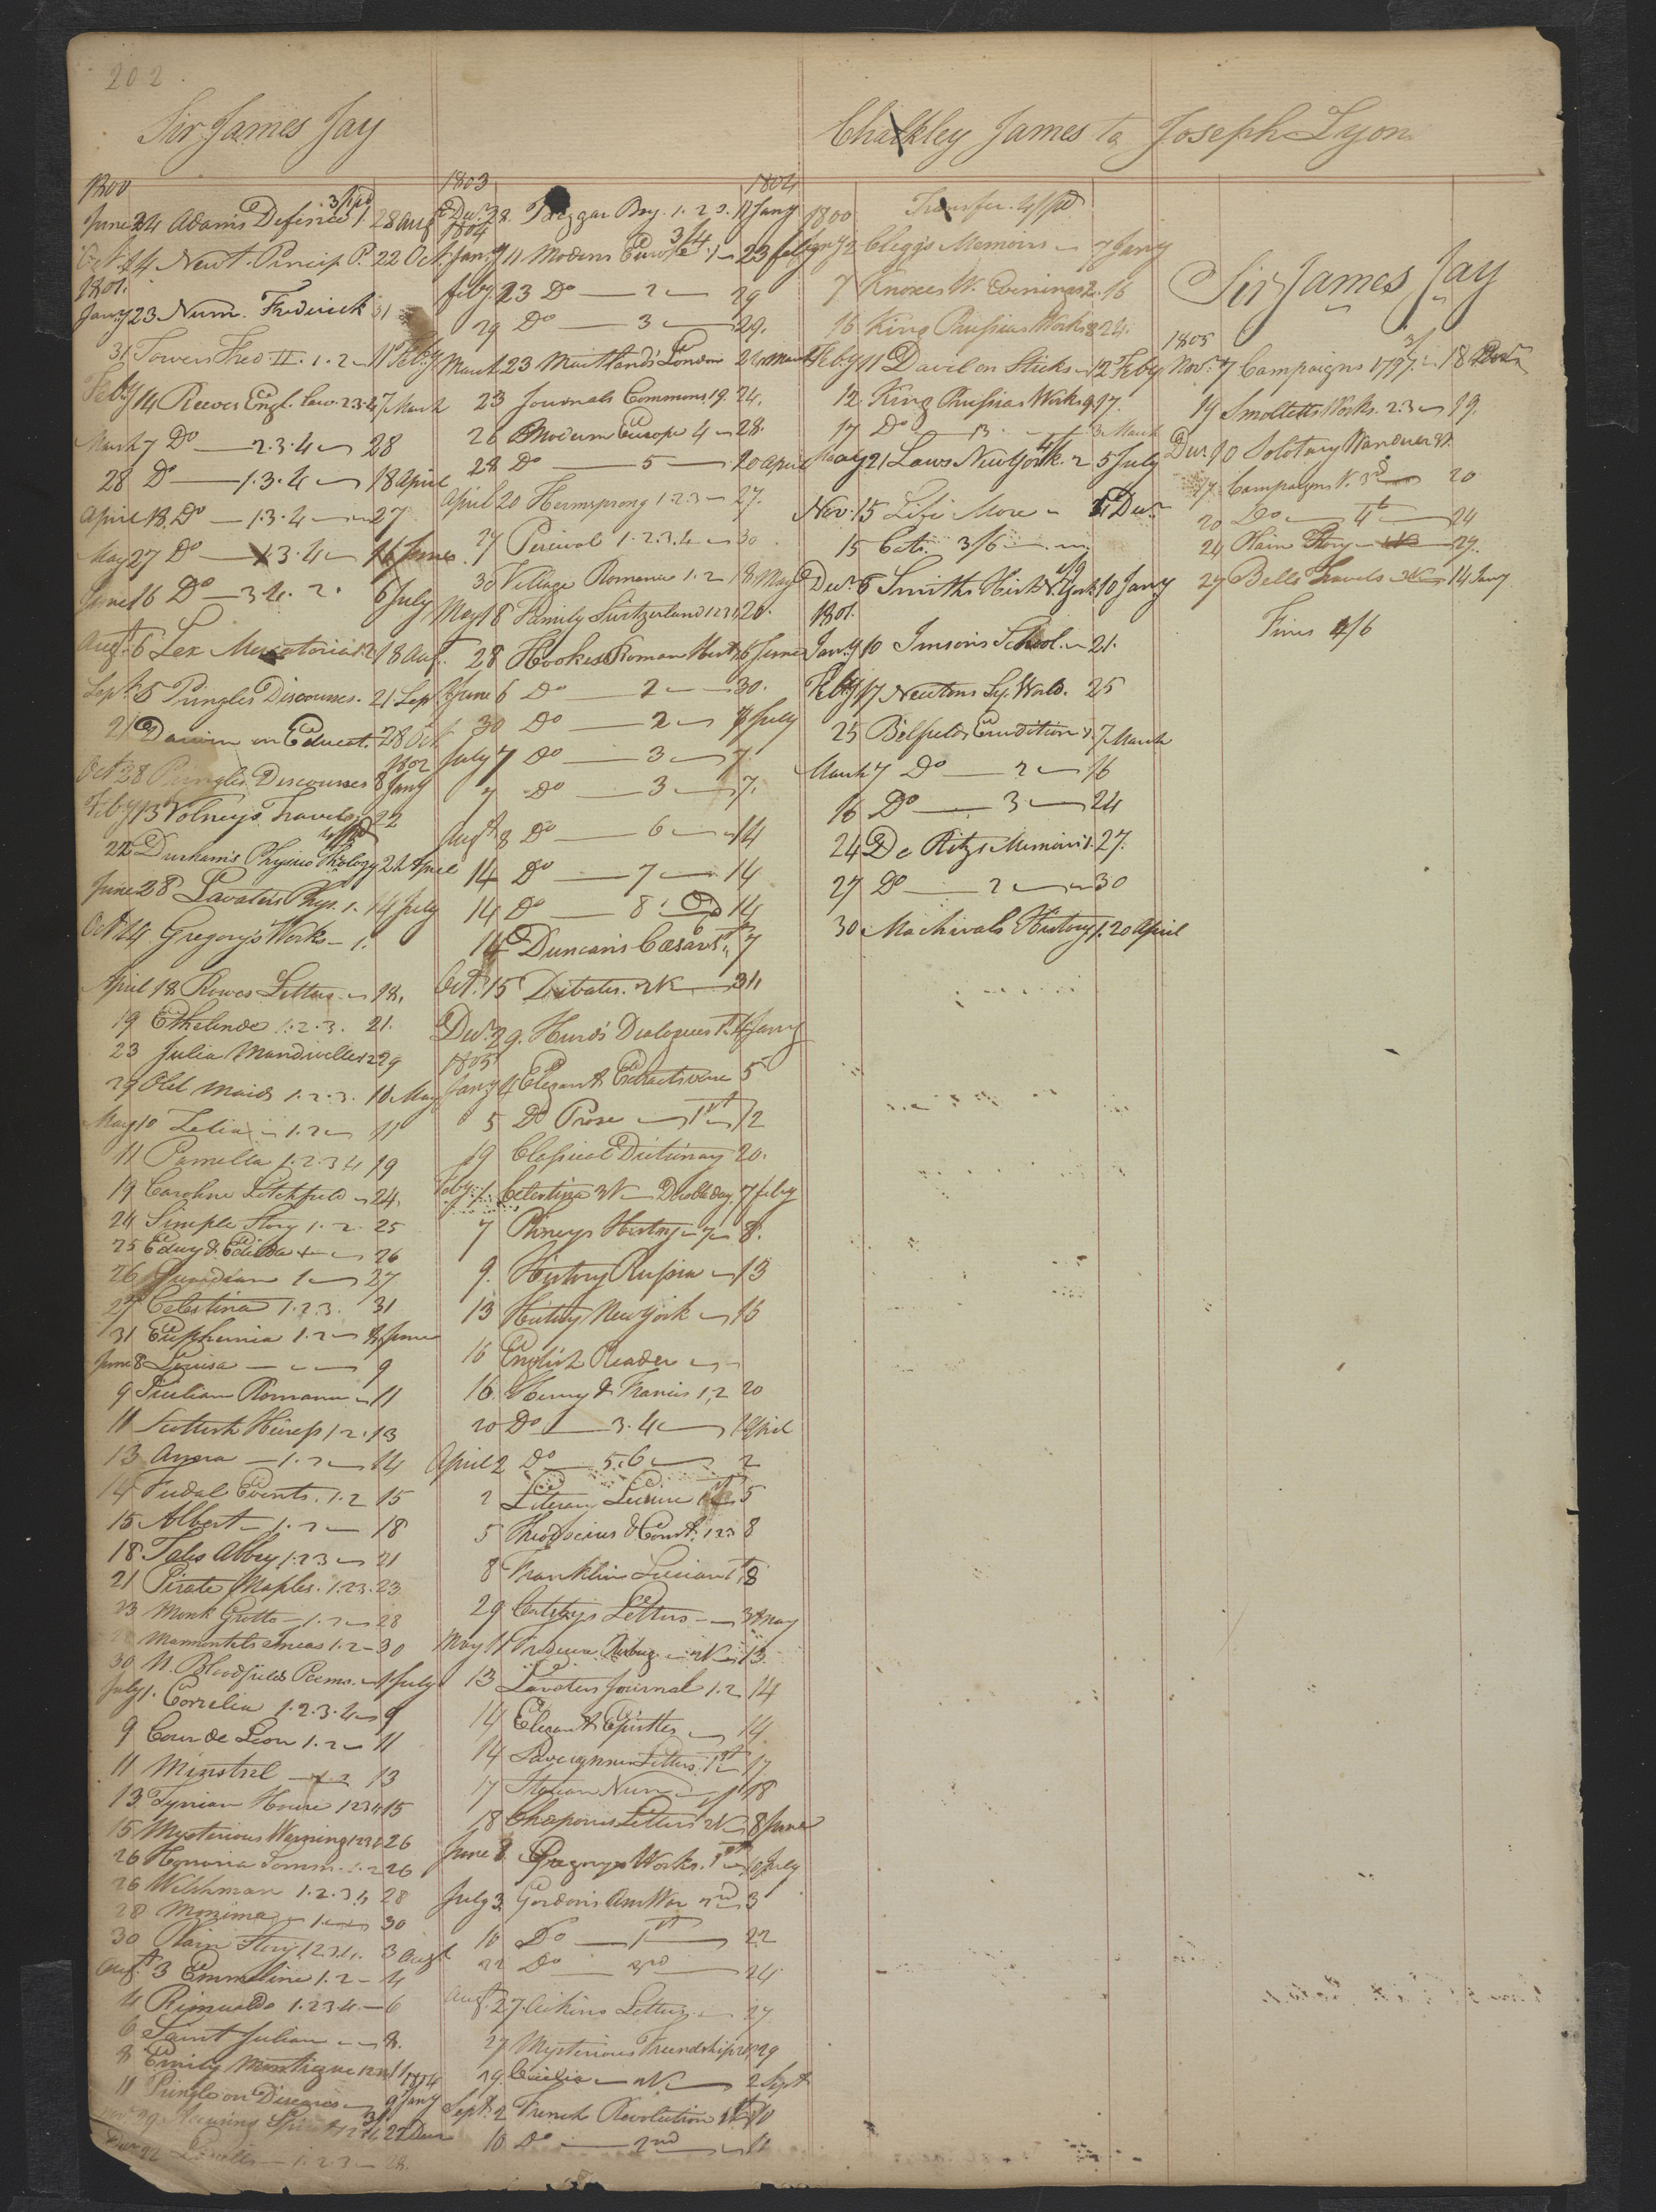 202
Sir James Jay
1800
June 24 Adams Defence 1. 28 Aug
Oct. 14 Newt. Princip P. 22 Oct
1801.
Jany 23 Num. Frederick 31
31 Towers Fred II. 1. 2 11 Feby
Feby 14 Reeves Engl. Law. 2.3.4 7 March
March 7 Do 2.3.4 28
28 Do 1.3.4 18 April
April 18 Do 1.3.4 27
May 27 Do 3.4 16 June
June 16 Do 3 4. 2. 6 July
Augt. 6 Lex Mercatoria 18 Augt.
Sept. 5 Pringles Discourses. 21 Sept
21 Darwin on Educat. 28 Oct
1802
Oct. 28 Pringles Discourses 8 Jany
Feby 13 Volneys Travels 22
22 Durham's Physico Theology 24 April
June 28 Lavaters Phys. 1. 14 July
Oct 14 Gregory's Works 1.
April 18 Rowes Letters 18.
19 Ethelinde 1.2.3. 21.
23 Julia Mandivelle 12 29
29 Old Maid 1.2.3. 10 May
May 10 Letia 1.2 11
11 Pamella 1.2.3 4 19
19 Caroline Litchfield 24.
24 Simple Story 1.2. 25
25 Edwy & Edilda 26
26 Guardian 1 27
27 Celestina 1.2.3. 31
31 Euphemia 1.2 8 June
June 8 Louisa 9
9 Sicilian Romance 11
11 Scottish Heiress 1.2. 13
13 Anna 1.2 14
14 Feudal Events. 1.2 15
15 Albert 1.2 18
18 Tales Abbey 1.2 3 21
21 Pirate Naples. 1.2 3. 23
23 Monk Grotto 1.2 28
Marmontels Incas 1.2 30
30 N. Bloodfields Poems. 1 July
July 1. Correlia 1.2.3.4 9
9 Cour de Leon 1.2 11
11 Minstrel 1.2 13
13 Tynian House 1 2 3 4 15
15 Mysterious Warning 1 2 3 4 26
26 Honoria Somm. 1.2 26
26 Welshman 1.2.3 4 28
28 Monima 1 30
30 Plain Story 1 2 3 4. 3 Augt
Augt. 3 Emmeline 1.2 4
4 Rimualdo 1.2 3 4. 6
6 Saint Julian 8.
8 Emily Montague 11
1804
11 Pringle on Diseases 9 Jany
1803
Decr. 28. Taeggar Bay. 1.2 3. 11 Jany
1804
1804
Jany 11 Modern Europe 1 23 feby
feby 23 Do 2 29
29 Do 3 29.
March 23 Maitland's London 24 March
23 Journals Commons 19. 24.
26 Modern Europe 4 28.
28 Do 5 20 April
April 20 Hermsprong 1.2.3 27.
27 Percival 1.2.3.4 30
30 Village Romance 1.2 18 May
May 18 Family Switzerland 1 2 3 4 28.
28 Hookes Roman Hist 1 6 June
June 6 Do 2 30.
30 Do 2 7 July
July 7 Do 3 7
7 Do 3 7.
Augt 8 Do 6 14
14 Do 7 14
14 Do 8 14
14 Duncan's Cæsar 1st 7
Oct. 15 Debates. 2N 31.
Decr. 29. Hurd's Dialogues 1st. 4 Jany
1805
Jany 4 Elegant Extracts verse 5
5 Do Prose 1st 12
19 Classical Dictionary 20.
Feby. 1. Celestina 3N Double day 7 feby
7 Pineys History 8.
9. History Russia 13
13 History New York 15
16 English Reader
16 Henry & Francis 1.2 20
20 Do 3.4 1 April
April 2 Do 5.6 2
2 Literary Leisure 1st 5
5 Theodocius & Const. 1 2 3 8
8 Franklin Lucian 1st 8
29 Catsbys Letters 3d May
May 11 13
13 Lavaters Journal 1.2 14
14 Elegant Epistles 14
14 Letters. 1st 17
17 Italian Nun 18
18 Chapones Letters 2N 8 June
June 8. Gregorys Works. 1st 10 July
July 3. Gordon's Am War 2nd 3
10 Do 1st 22
22 Do 3rd 24
Augt. 27. Aikins Letters. 27
27 Mysterious Friendship 29
29. Cicilia 2N 2 Sept
Sept. 2 French Revolution 1st 10
10 Do 2nd 11
Chalkley James to Joseph Lyon
Transfer. 4/ pd
1800
Jany 2 Cleggs Memoirs 7 Jany
7 Knoxes W. Evenings 2. 16
16 King Prussias Works 8 24.
Feby 11 Davil on Sticks 12 Feby
12. King Prussias Works 9 17.
17 Do 13 3 March
May 21 Laws New York. 2 5 July
Nov. 15 Life More 5 Decr.
15 Cats. 3/6
Decr. 5 Smiths Hist N. York 10 Jany
1801.
Jany 10 Imsons School. 21.
Feby 17 Newtons Sy. World. 25
25 Bielfields Erudition 1. 7 March
March 7 Do 2 16
16 Do 3 24
24 De Ritzs Memoirs 1. 27.
27 Do 2 30
30 Machivals History 1. 20 April
Sir James Jay
1805
Novr. 7 Campaigns 1797. 18 Decr
19 Smolletts Works. 2.3 19.
Decr 10 Solotary Wanderer N.
17 Campaigns N. 3rd 20
20 Do 4th 24
24 Plain Story 27.
27 Bells Travels 14 Jany
Fines 4/6